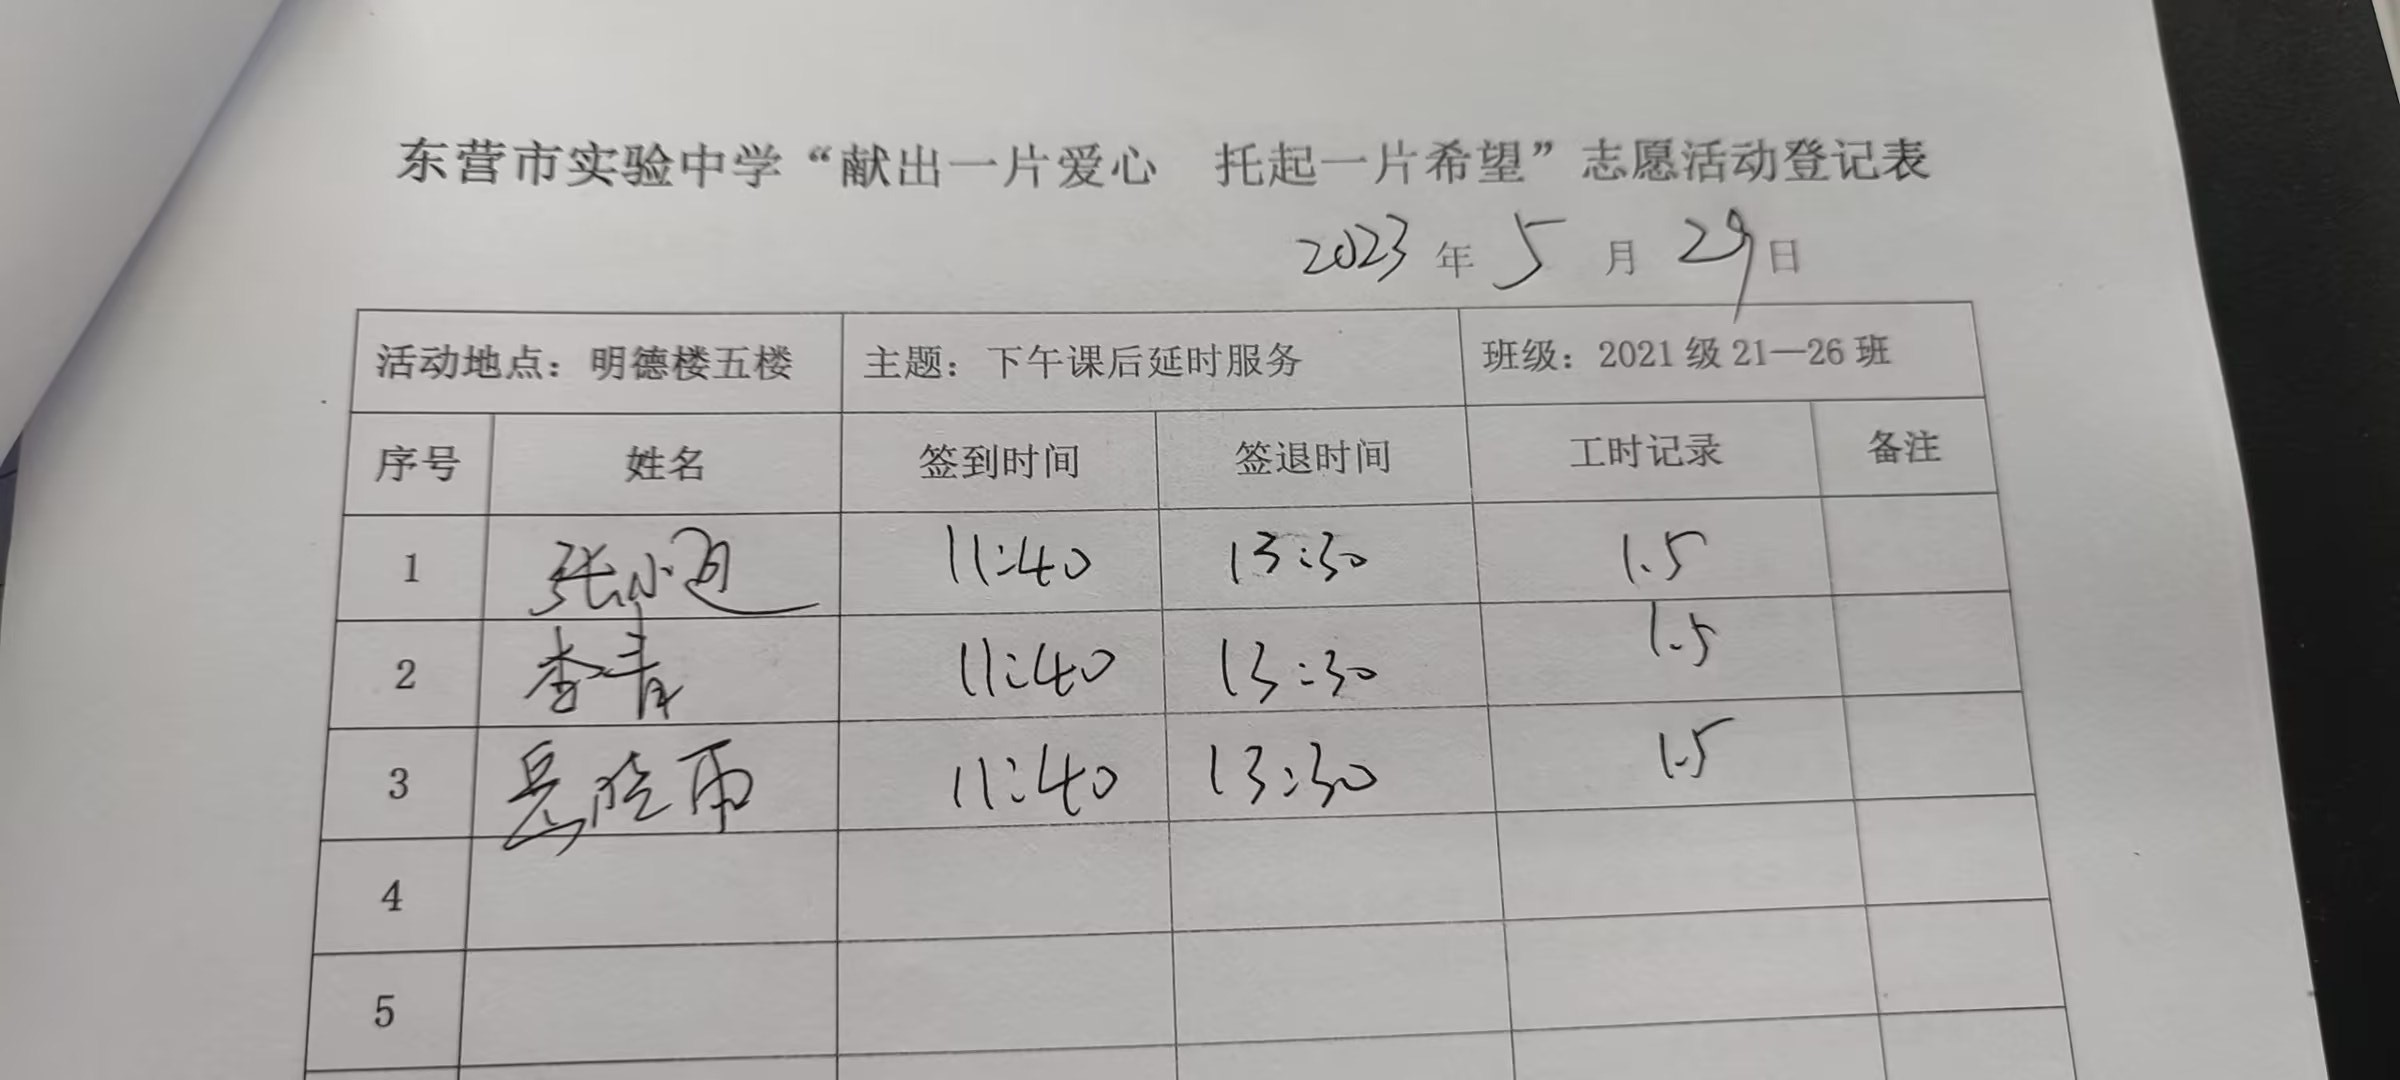 东营市实验中学“献出一片爱心 托起一片希望”志愿活动登记表
2023 年 5 月 29 日
活动地点：明德楼五楼 主题：下午课后延时服务 班级：2021 级 21—26 班
序号 姓名 签到时间 签退时间 工时记录 备注
1 张小 11:40 13:30 1.5
2 李青 11:40 13:30 1.5
3 晓雨 11:40 13:30 1.5
4
5